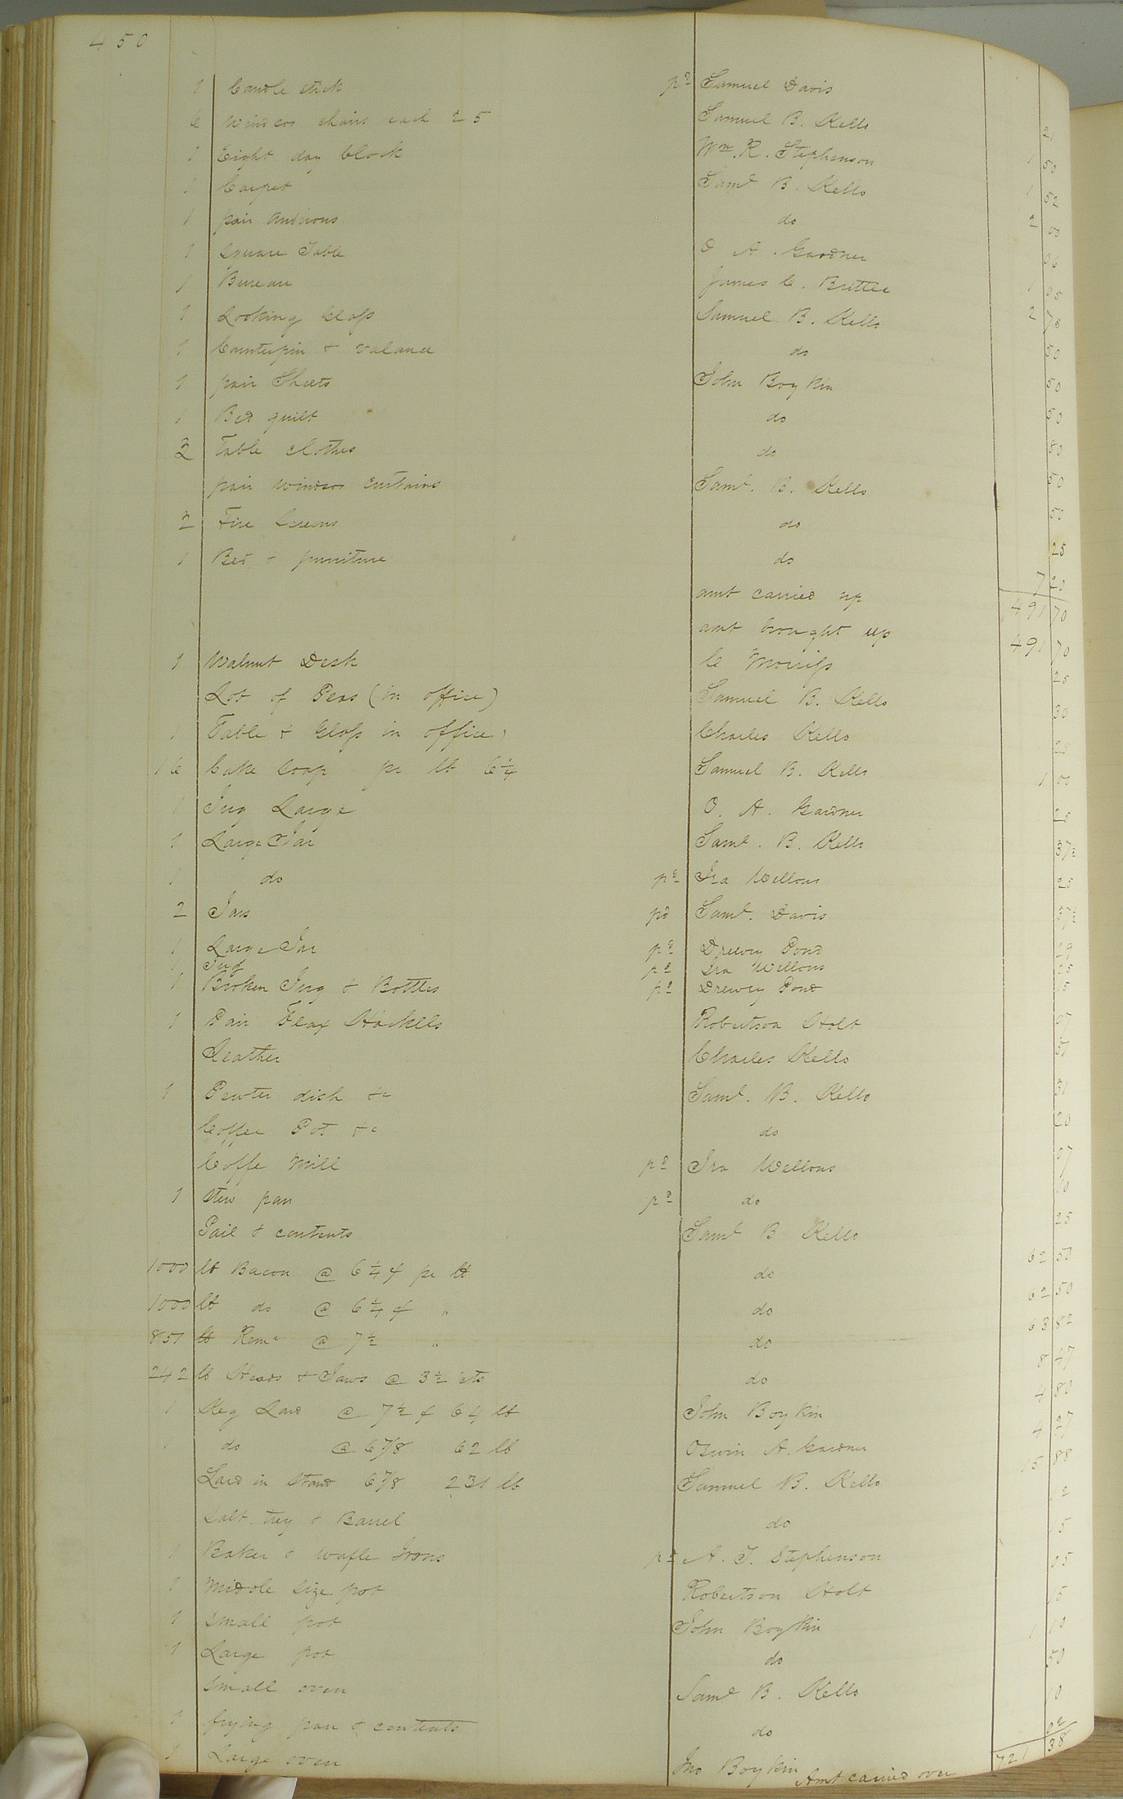 450
1 Candle stick pd Samuel Davis
6 windsor chairs each 25 Samuel B. Kello
1 Eight day Clock Wm. R. Stephenson 1 50
1 Carpet Saml B. Kello 1
1 pair andirons do 2
1 square Table A. Gardner
1 Bureau James C. Brittle 1
1 Looking Glass Samuel B. Kello 2
1 Counterpin & valance do 50
1 pair Sheets John Boykin 50
1 Bed quilt do 50
2 Table clothes do 80
pair window curtains Saml. B. Kello 50
2 Fire Screens do
1 Bed & furniture do 25
amt carried up 491 70
amt brought up 491 70
1 Walnut Desk C Morriss 25
Lot of Peas (in office) Samuel B. Kello 30
1 Table & Glass in office Charles Kello
16 Cake soap pr lb 6¼ Samuel B. Kello 1 00
1 Jug Large O. A. Gardner 25
1 Large Jar Saml. B. Kello 37½
1 do pd Ira Wellons 25
2 Jars pd Saml. Davis 37½
1 Large Jar pd Drewry Pond
1 Jug pd Ira Wellons
1 Broken Jug & Bottles pd Drewry Pond
1 Pair Flax Hackells Robertson Holt
Leather Charles Kello
1 Pewter dish &c Saml. B. Kello 31
Coffee Pot &c do 20
Coffe Mill pd Ira Wellons 07
1 Stew pan pd do 10
Pail & contents Saml B Kello 25
1000 lb Bacon @ 6¼ ¢ pr lb do 62 50
1000 lb do @ 6¼ ¢ " do 62 50
851 lb Remr @ 7½ " do 63 82
242 lb Heads & Jaws @ 3½ cts do 8 47
1 Keg Lard @ 7½ ¢ 64 lb John Boykin 4 80
1 do @ 6 7/8 62 lb Oswin A. Gardner 4 27
Lard in Stand 6 7/8 231 lb Samuel B. Kello 15 88
Salt trey & Barrel do
1 Baker & wafle Irons pd A. J. Stephenson 05
1 Middle size pot Robertson Holt 15
1 small pot John Boykin 10
1 Large pot do 1
small oven Saml B. Kello 50
1 frying pan & contents do 10
1 Large oven Jno Boykin
Amt carried over 721 38